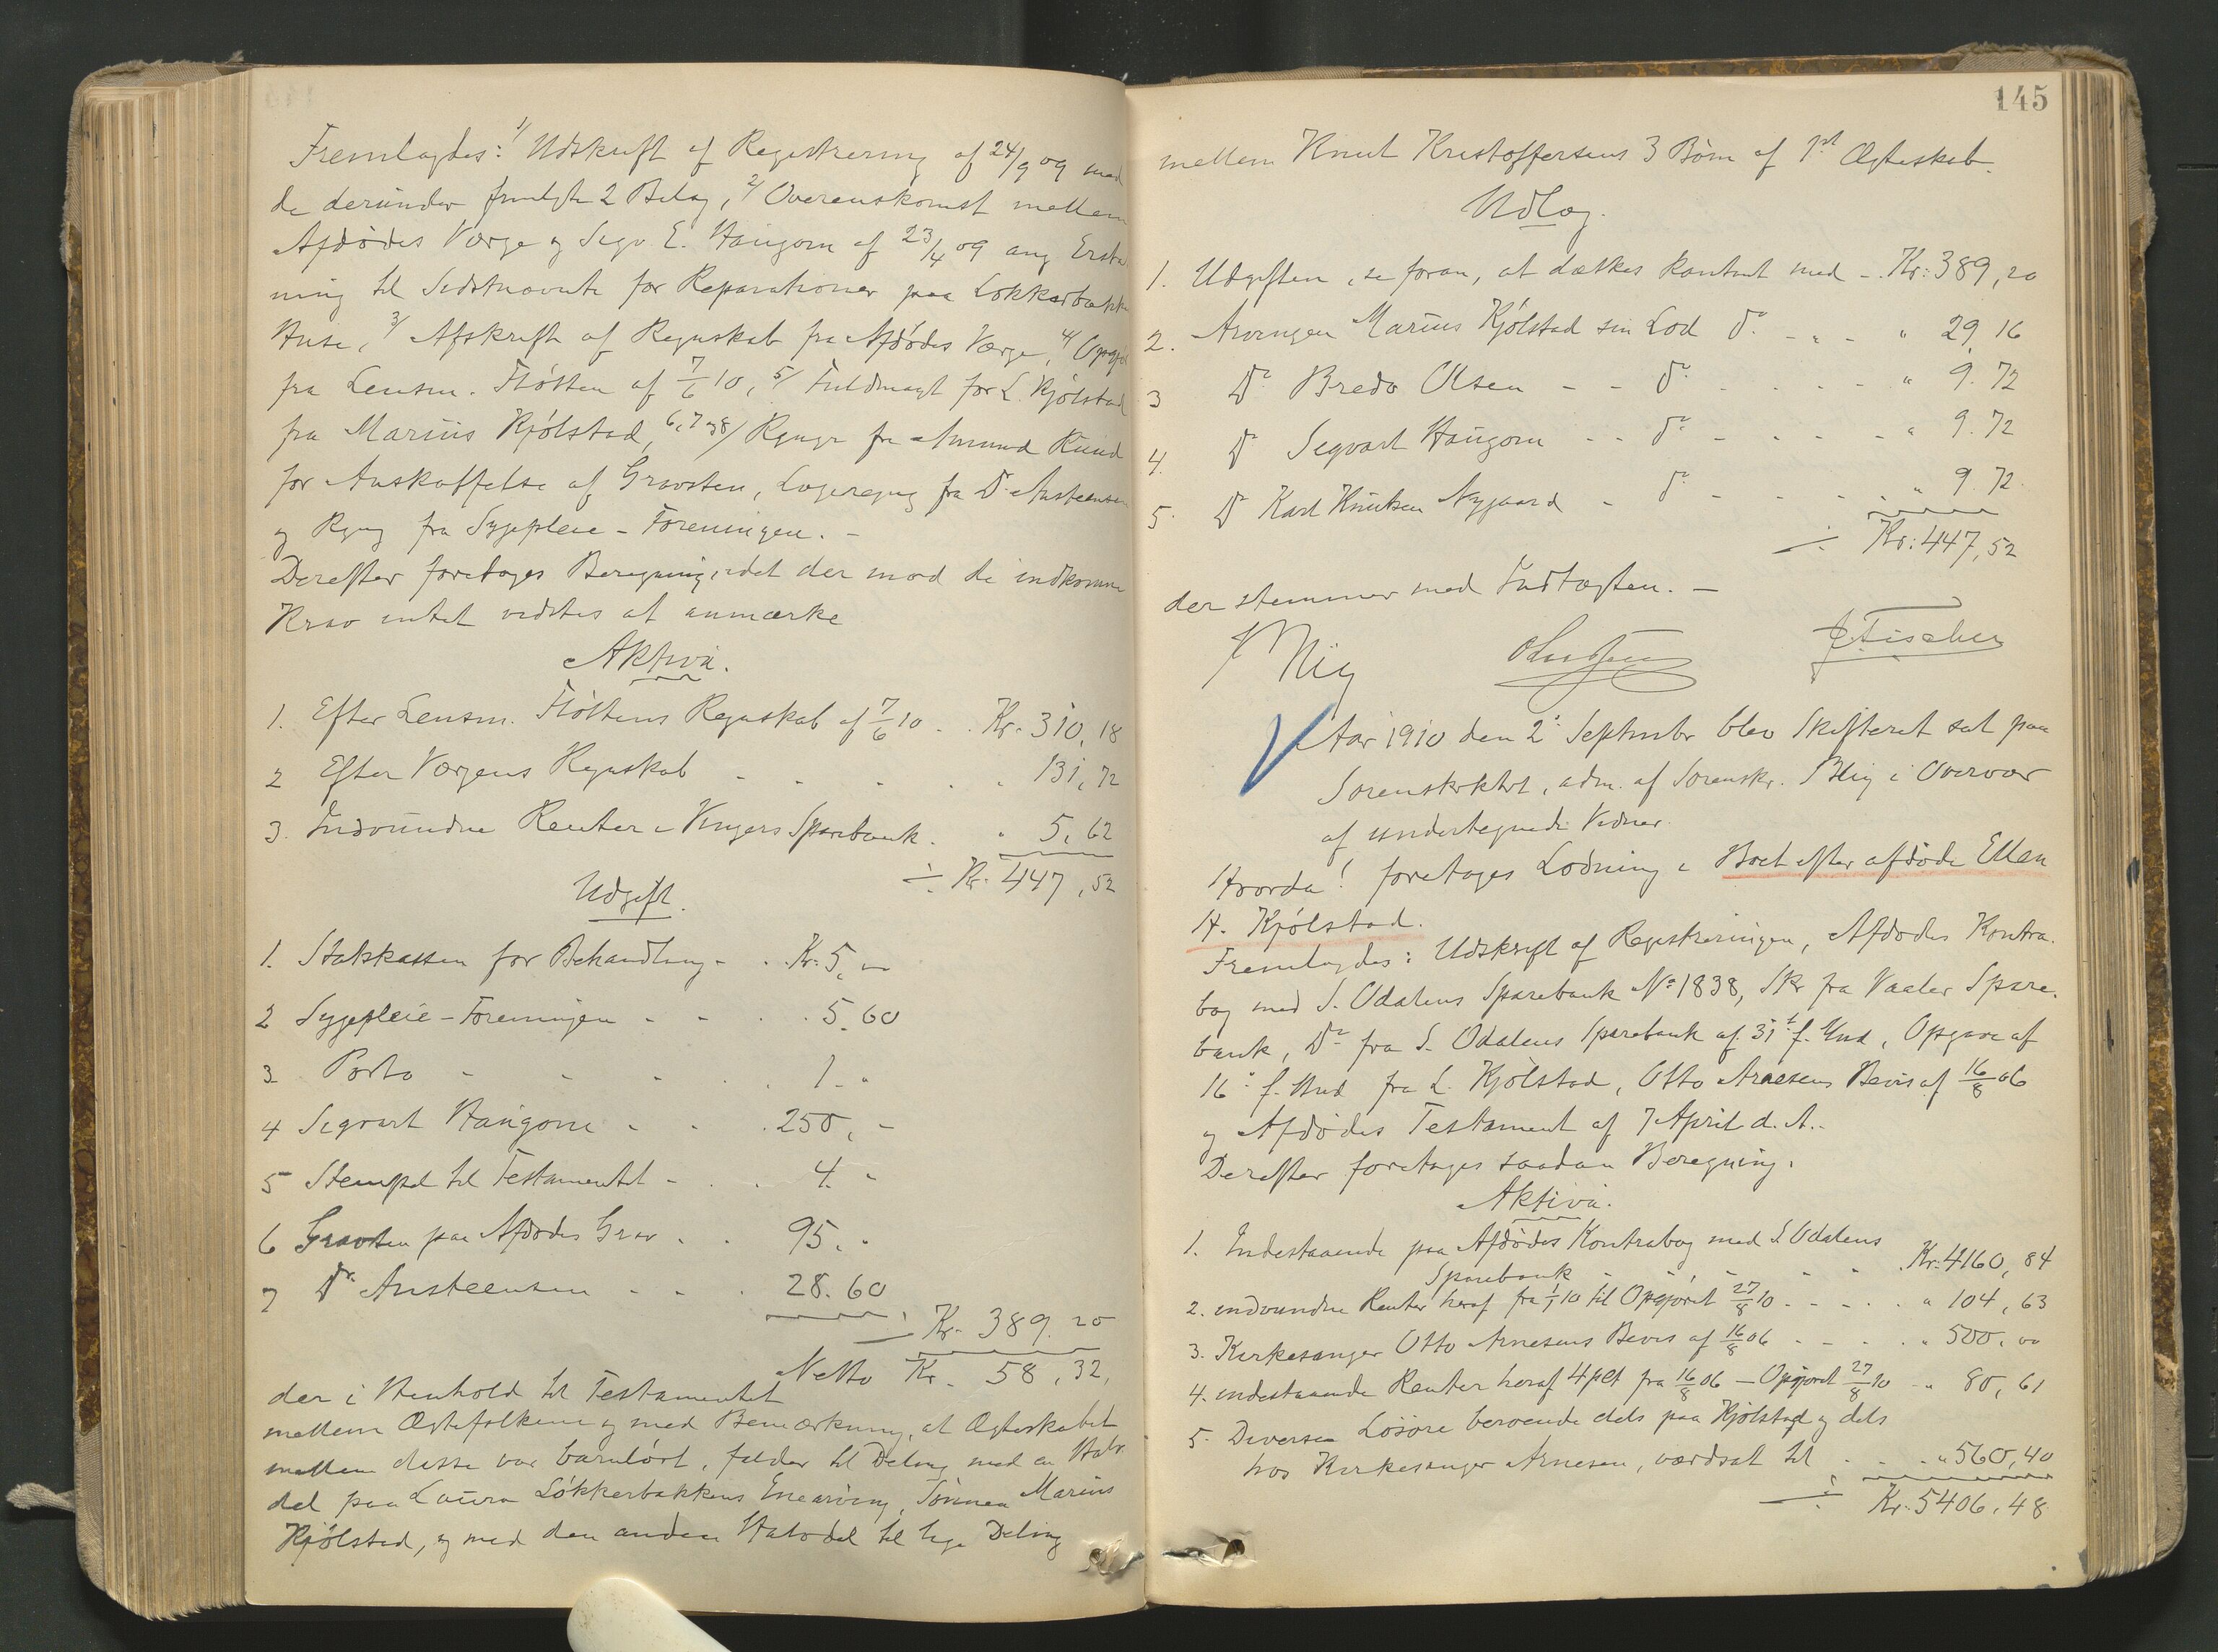 Fremlagdes: 1/ Udskrift af Registrering af 24/9 09 med
de derunder fremlagte 2 Bilag, 2/ Overenskomst mellem
Afdødes Værge og Sigv. E. Haugom af 23/4 09 ang Erstat
ning til Sidstnævnte for Reparationer paa Løkkerbakken
Huse, 3/ Afskrift af Regnskab fra Afdødes Værge, 4/ Opgjør
fra Lensm. Fløtten af 7/6 10, 5/ Fuldmagt for L. Kjølstad
fra Marius Kjølstad, 6, 7 og 8/ Regngr fra Amund Ruud
for Anskaffelse af Gravsten, Lægeregng fra Dr. Ansteensen
og Regng fra Sygepleie-Foreningen. -
Derefter foretoges Beregning, idet der mod de indkomne
Krav intet vidstes at anmærke
Aktiva.
1. Efter Lensm. Fløttens Regnskab af 7/6 10 . . Kr. 310,18
2 Efter Værgens Regnskab - - - . . 131,72
3. Indvundne Renter i Vingers Sparebank . " 5,62
Kr. 447,52
Udgift.
1. Statskassen for Behandling - . Kr. 5,00
2 Sygepleie-Foreningen - - . . 5.60
3 Porto - - - . . 1. "
4 Sigvart Haugom - - . 250, -
5 Stempel til Testamentet - . . 4. "
6 Gravsten paa Afdødes Grav . . 95. "
7 Dr. Ansteensen - - . 28.60
Kr. 389.20
Netto Kr. 58,32,
der i Henhold til Testamentet
mellem Ægtefolkene og med Bemærkning, at Ægteskabet
mellem disse var barnløst, falder til Deling med en Halv
del paa Laura Løkkerbakkens Enearving, Sønnen Marius
Kjølstad, og med den anden Halvdel til lige Deling
145
mellem Knut Kristoffersens 3 Børn af 1st Ægteskab.
Udlæg.
1. Udgiften, se foran, at dækkes kontant med - Kr: 389,20
2. Arvingen Marius Kjølstad sin Lod do - - - " 29,16
3 Do Bredo Olsen - - do - - - - " 9.72
4. Do Segvart Haugom - - do - - - - " 9.72
5. Do Karl Knutsen Nygaard - do - - - - " 9.72.
Kr: 447,52
der stemmer med Indtægten. -
J. Fischer
Aar 1910 den 2: September blev Skifteret sat paa
Sorenskrktrt, adm. af Sorenskr. Blig i Overvær
af undertegnede Vidner.
Hvorda! foretoges Lodning i Boet efter afdøde Ellen
H. Kjølstad.
Fremlagdes: Udskrift af Registreringen, Afdødes Kontra.
bog med S. Odalens Sparebank No 1838, Skr fra Vaaler Spare.
bank, Do fra S. Odalens Sparebank af 31t f. Md, Opgave af
16: f. Md fra L. Kjølstad, Otto Arnesens Bevis af 16/8 06
og Afdødes Testament af 7 April d. A..
Derefter foretoges saadan Beregning.
Aktiva.
1. Indestaaende paa Afdødes Kontrabog med S. Odalens
Sparebank - - - - - Kr: 4160,84
2. indvundne Renter heraf fra 1/1 10 til Opgjøret 27/8 10 . - - - " 104,63
3. Kirkesanger Otto Arnesens Bevis af 16/8 06 - - - " 500.00
4. indestaaende Renter heraf 4 pct fra 16/8 06 - Opgjøret 27/8 10 - " 80,61
5. Diverse Løsøre beroende dels paa Kjølstad og dels
hos Kirkesanger Arnesen, værdsat til . . . " 560,40
Kr. 5406.48